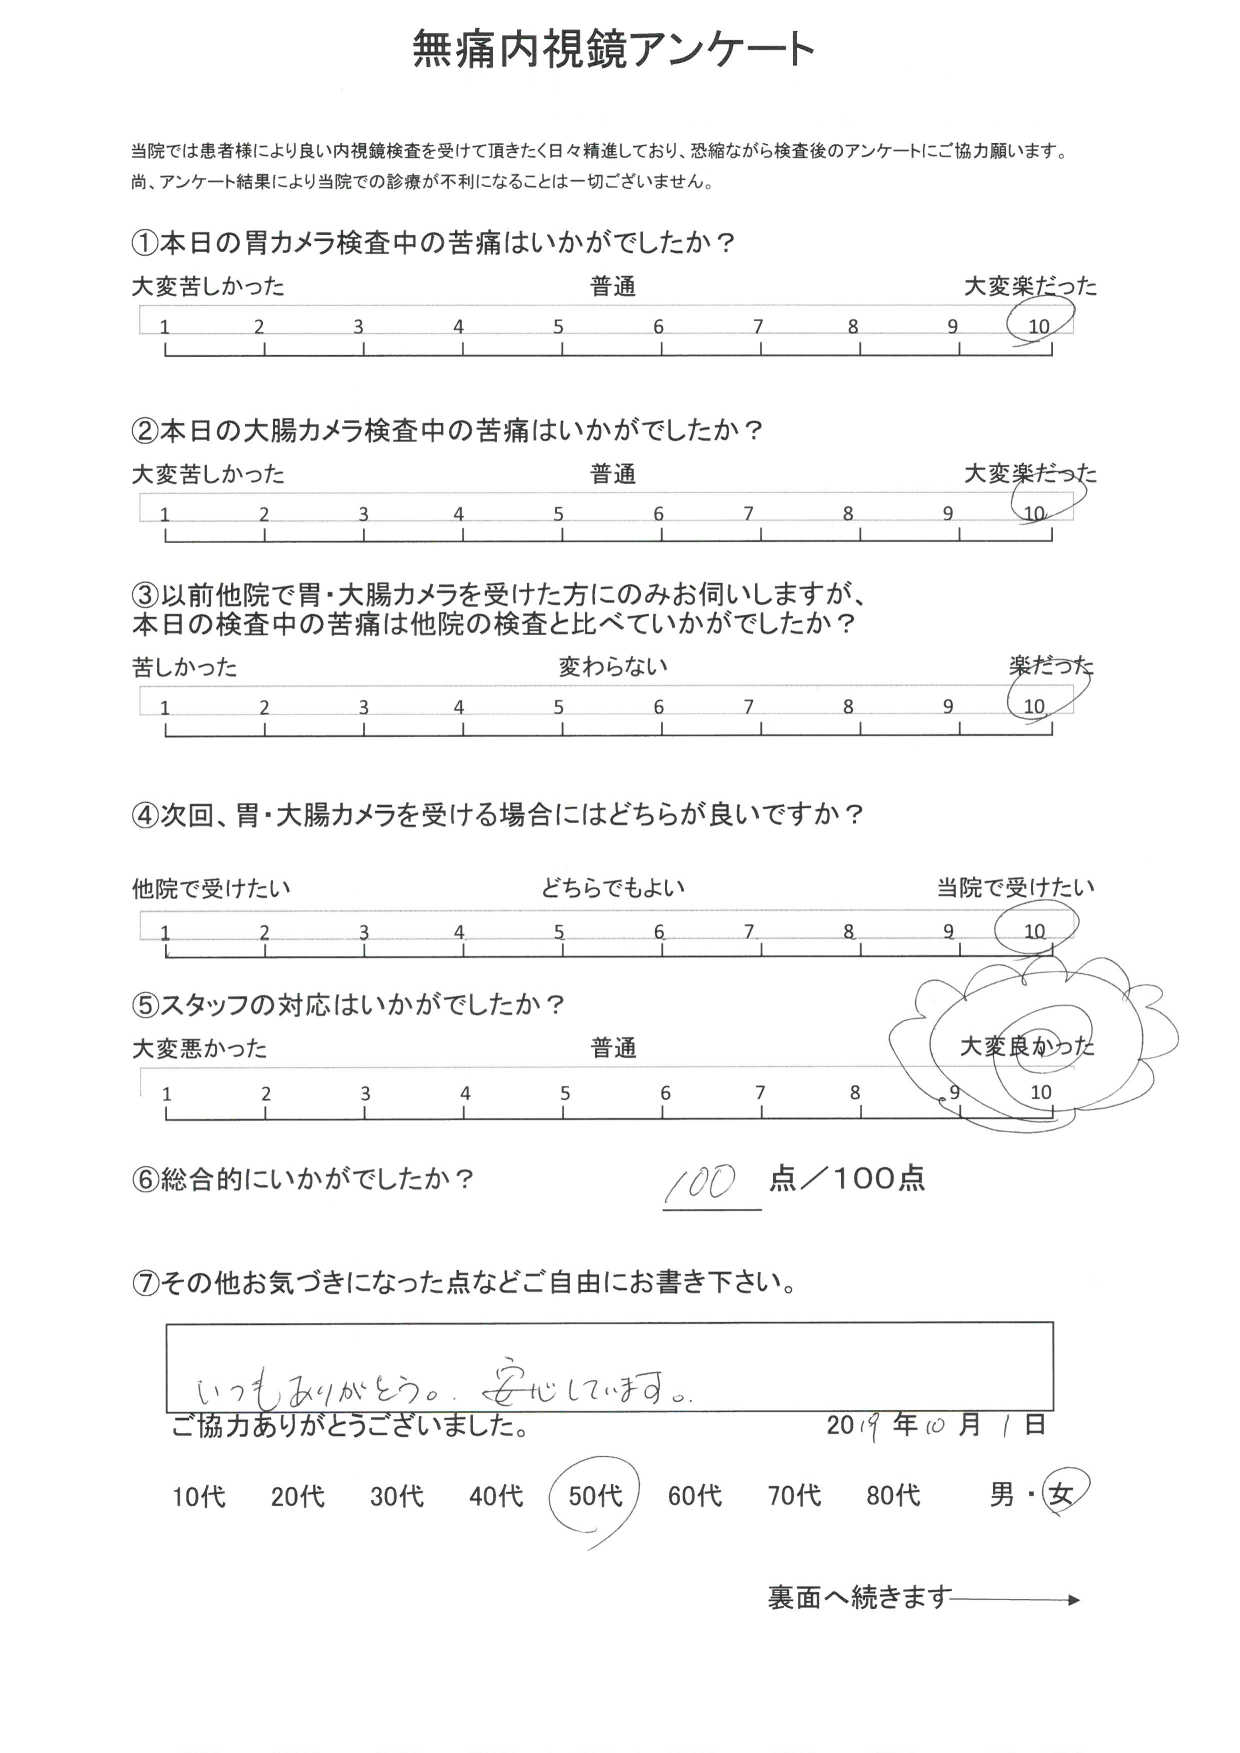 無痛内視鏡アンケート
当院では患者様により良い内視鏡検査を受けて頂きたく日々精進しており、恐縮ながら検査後のアンケートにご協力願います。
尚、アンケート結果により当院での診療が不利になることは一切ございません。
①本日の胃カメラ検査中の苦痛はいかがでしたか？
大変苦しかった 普通 大変楽だった
1 2 3 4 5 6 7 8 9 10
②本日の大腸カメラ検査中の苦痛はいかがでしたか？
大変苦しかった 普通 大変楽だった
1 2 3 4 5 6 7 8 9 10
③以前他院で胃・大腸カメラを受けた方にのみお伺いしますが、
本日の検査中の苦痛は他院の検査と比べていかがでしたか？
苦しかった 変わらない 楽だった
1 2 3 4 5 6 7 8 9 10
④次回、胃・大腸カメラを受ける場合にはどちらが良いですか？
他院で受けたい どちらでもよい 当院で受けたい
1 2 3 4 5 6 7 8 9 10
⑤スタッフの対応はいかがでしたか？
大変悪かった 普通 大変良かった
1 2 3 4 5 6 7 8 9 10
⑥総合的にいかがでしたか？ 100 点／100点
⑦その他お気づきになった点などご自由にお書き下さい。
いつもありがとう。安心しています。
ご協力ありがとうございました。 2019年10月1日
10代 20代 30代 40代 50代 60代 70代 80代 男・女
裏面へ続きます